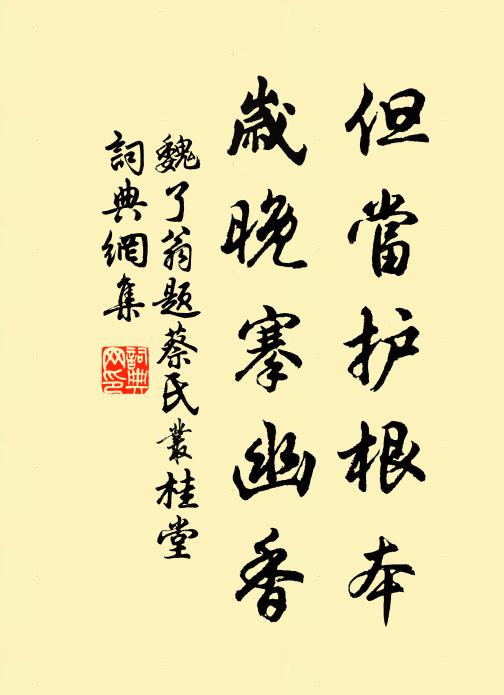 但當护根本
歲晚搴幽香
魏了翁题蔡氏叢桂堂
詞典網集
詞典网印